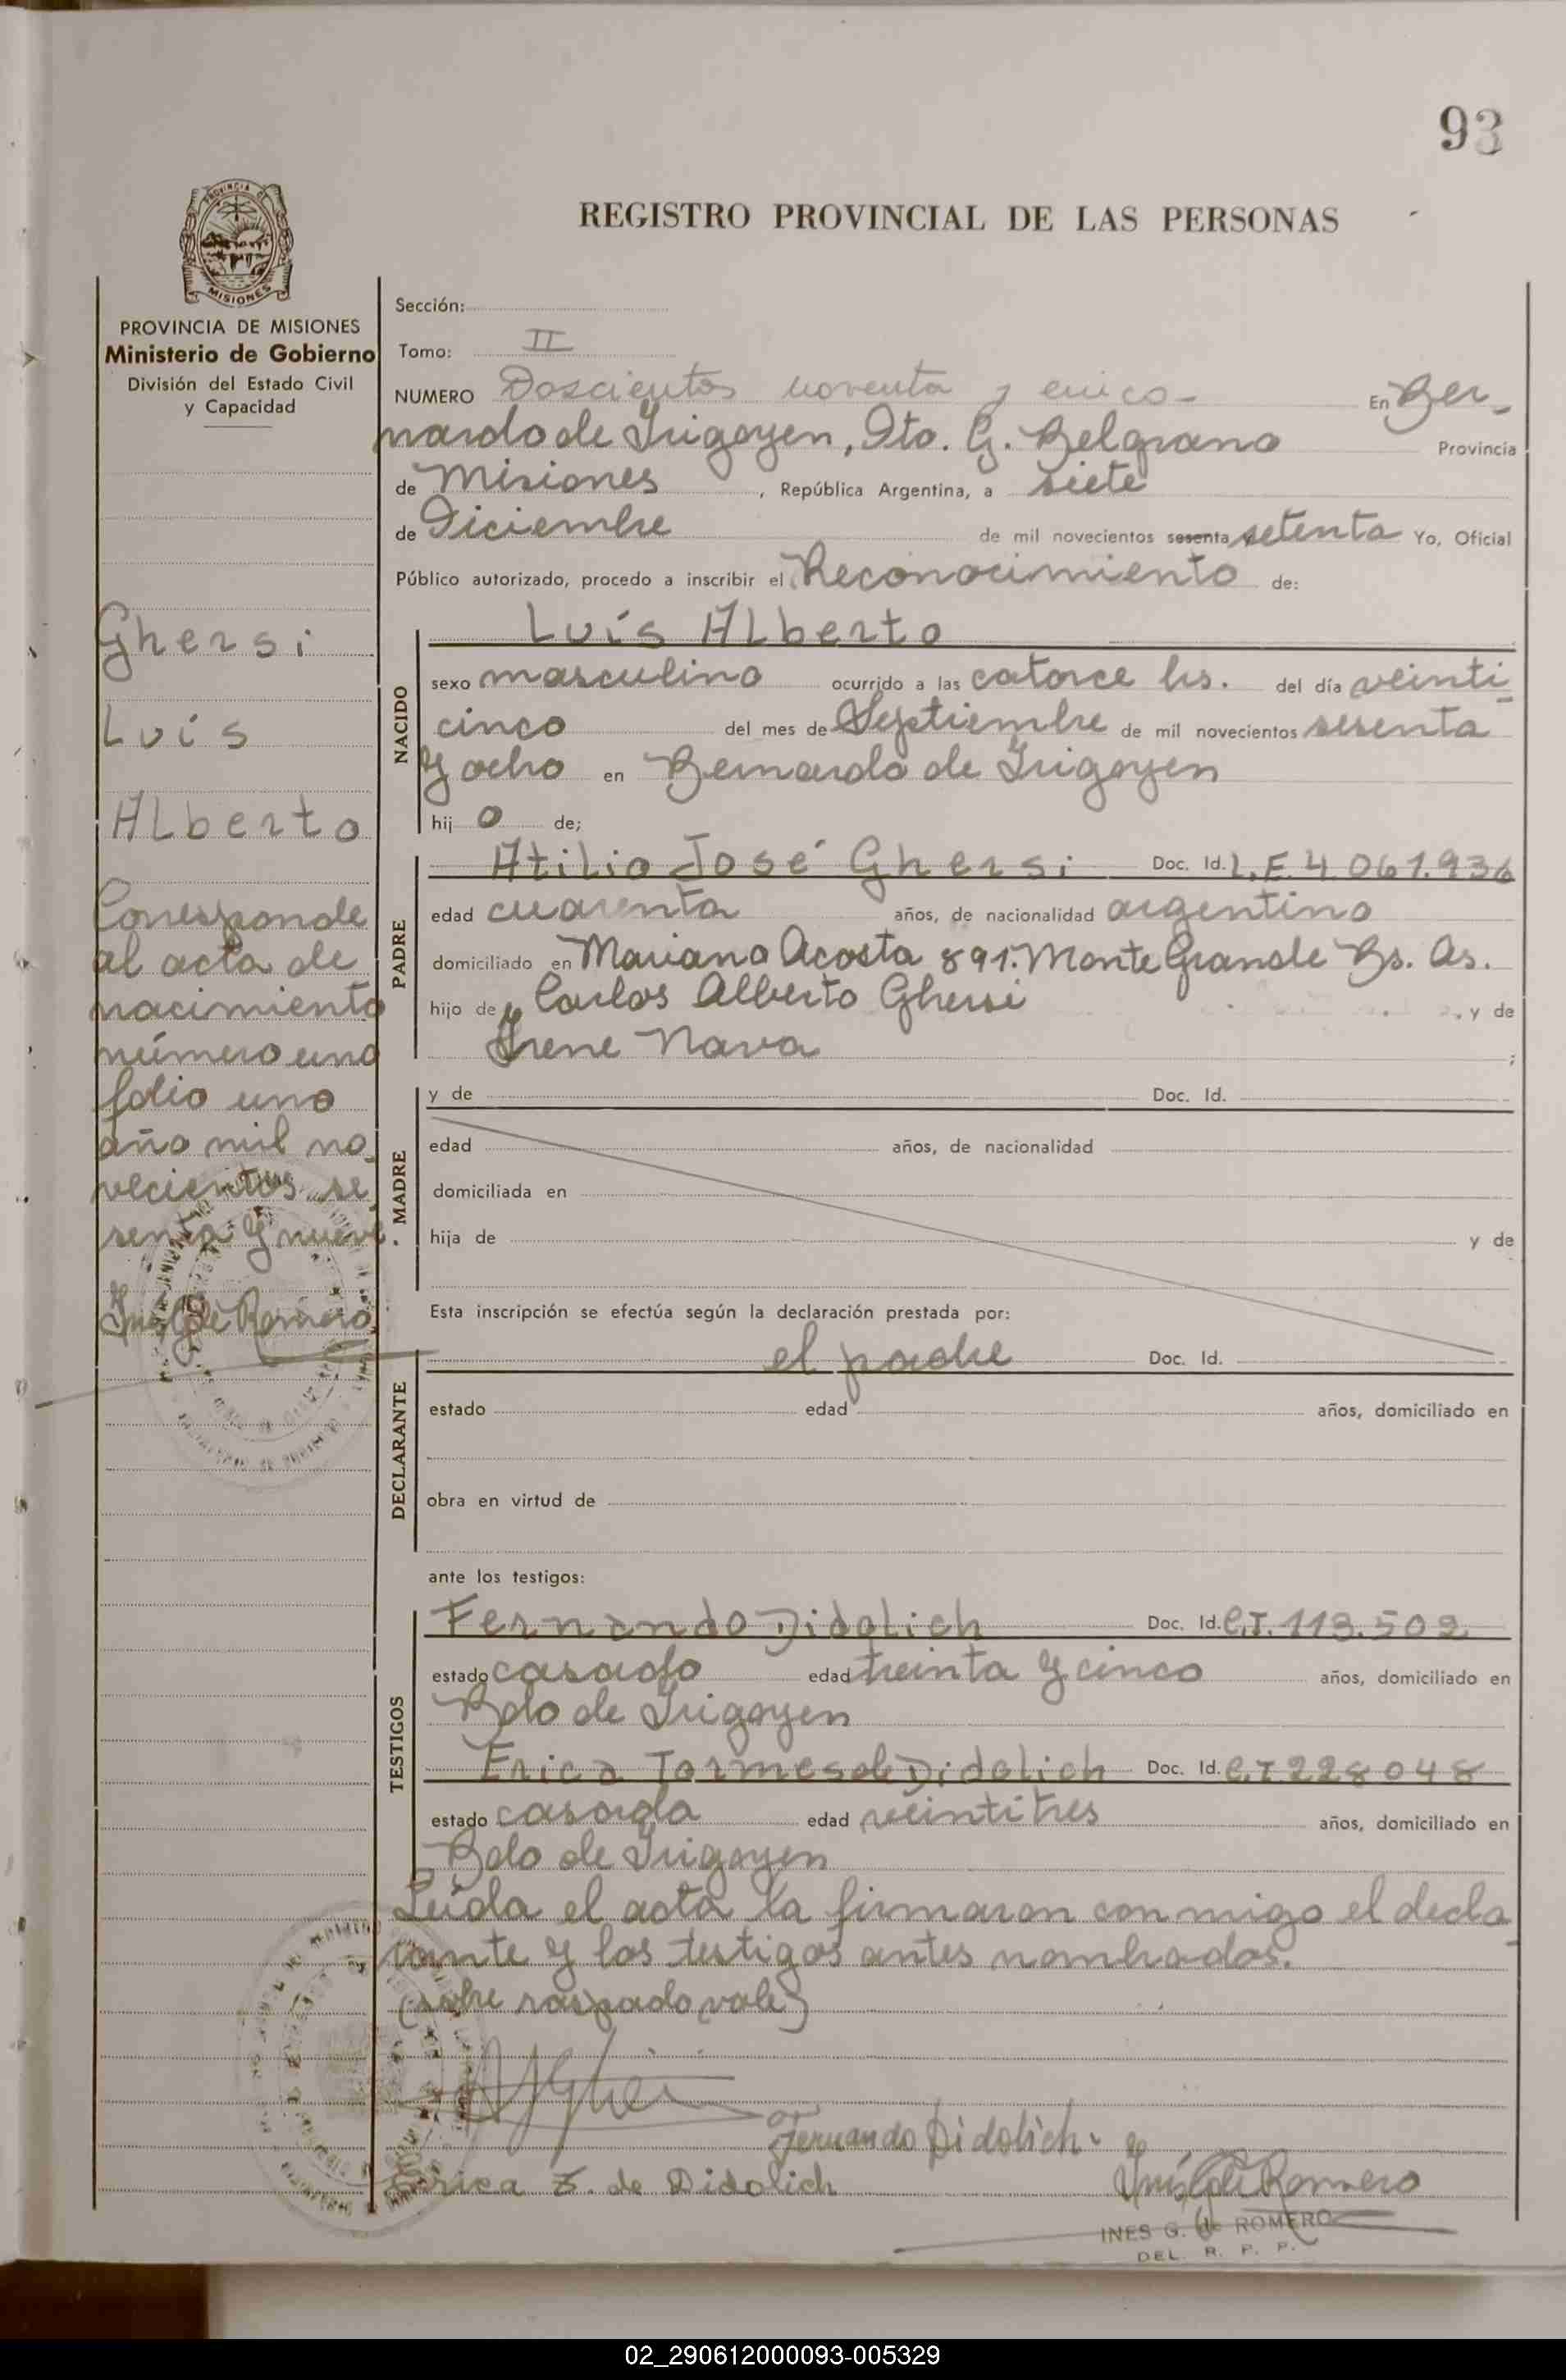 93
REGISTRO PROVINCIAL DE LAS PERSONAS
PROVINCIA DE MISIONES
Ministerio de Gobierno
División del Estado Civil
y Capacidad
Ghersi
Luis
Alberto
Corresponde
al acta de
nacimiento
número uno
folio uno
año mil no_
vecientos se_
senta y nueve
Inés G de Romero
Sección:
Tomo: II
NUMERO Doscientos noventa y cinco - En Ber_
nardo de Irigoyen, Dto. G. Belgrano Provincia
de Misiones, República Argentina, a siete
de Diciembre de mil novecientos sesenta setenta Yo, Oficial
Público autorizado, procedo a inscribir el Reconocimiento de:
NACIDO
Luis Alberto
sexo masculino ocurrido a las catorce hs. del día veinti_
cinco del mes de Septiembre de mil novecientos sesenta
y ocho en Bernardo de Irigoyen
hij o de;
PADRE
Atilio José Ghersi Doc. Id. L.E. 4.061.936
edad cuarenta años, de nacionalidad argentino
domiciliado en Mariano Acosta 891. Monte Grande Bs. As.
hijo de Carlos Alberto Ghersi y de
Irene Nava ;
MADRE
y de Doc. Id.
edad años, de nacionalidad
domiciliada en
hija de y de
Esta inscripción se efectúa según la declaración prestada por:
DECLARANTE
el padre Doc. Id.
estado edad años, domiciliado en
obra en virtud de
ante los testigos:
TESTIGOS
Fernando Didolich Doc. Id. C.I. 113.502
estado casado edad treinta y cinco años, domiciliado en
Bdo de Irigoyen
Erica Tormes de Didolich Doc. Id. C.I 228048
estado casada edad veintitres años, domiciliado en
Bdo de Irigoyen
Leída el acta la firmaron conmigo el decla_
rante y los testigos antes nombrados.
(sobre raspado vale)
Fernando Didolich
Erica T. de Didolich
Inés G de Romero
INES G. de ROMERO
DEL. R. P. P.
02_290612000093-005329